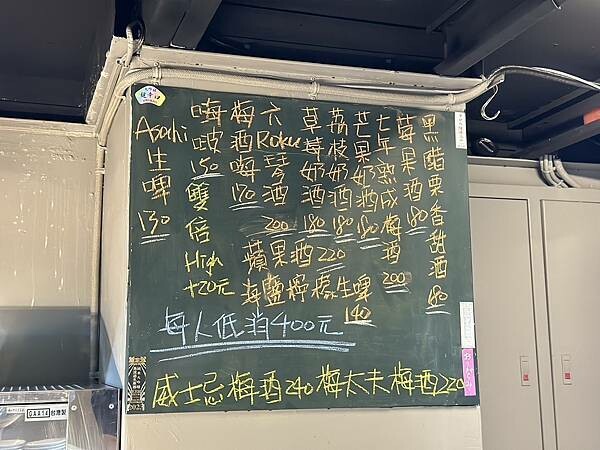 Asahi生啤130
嗨啵150
雙倍High+20元
梅酒嗨170
六Roku琴酒200
草莓奶酒180
荔枝奶酒180
芒果奶酒180
七年熟成梅酒200
莓果酒180
黑醋栗香甜酒180
蘋果酒220
海鹽檸檬生啤140
每人低消400元
威士忌梅酒240 梅太夫梅酒220
GAA14 台灣製